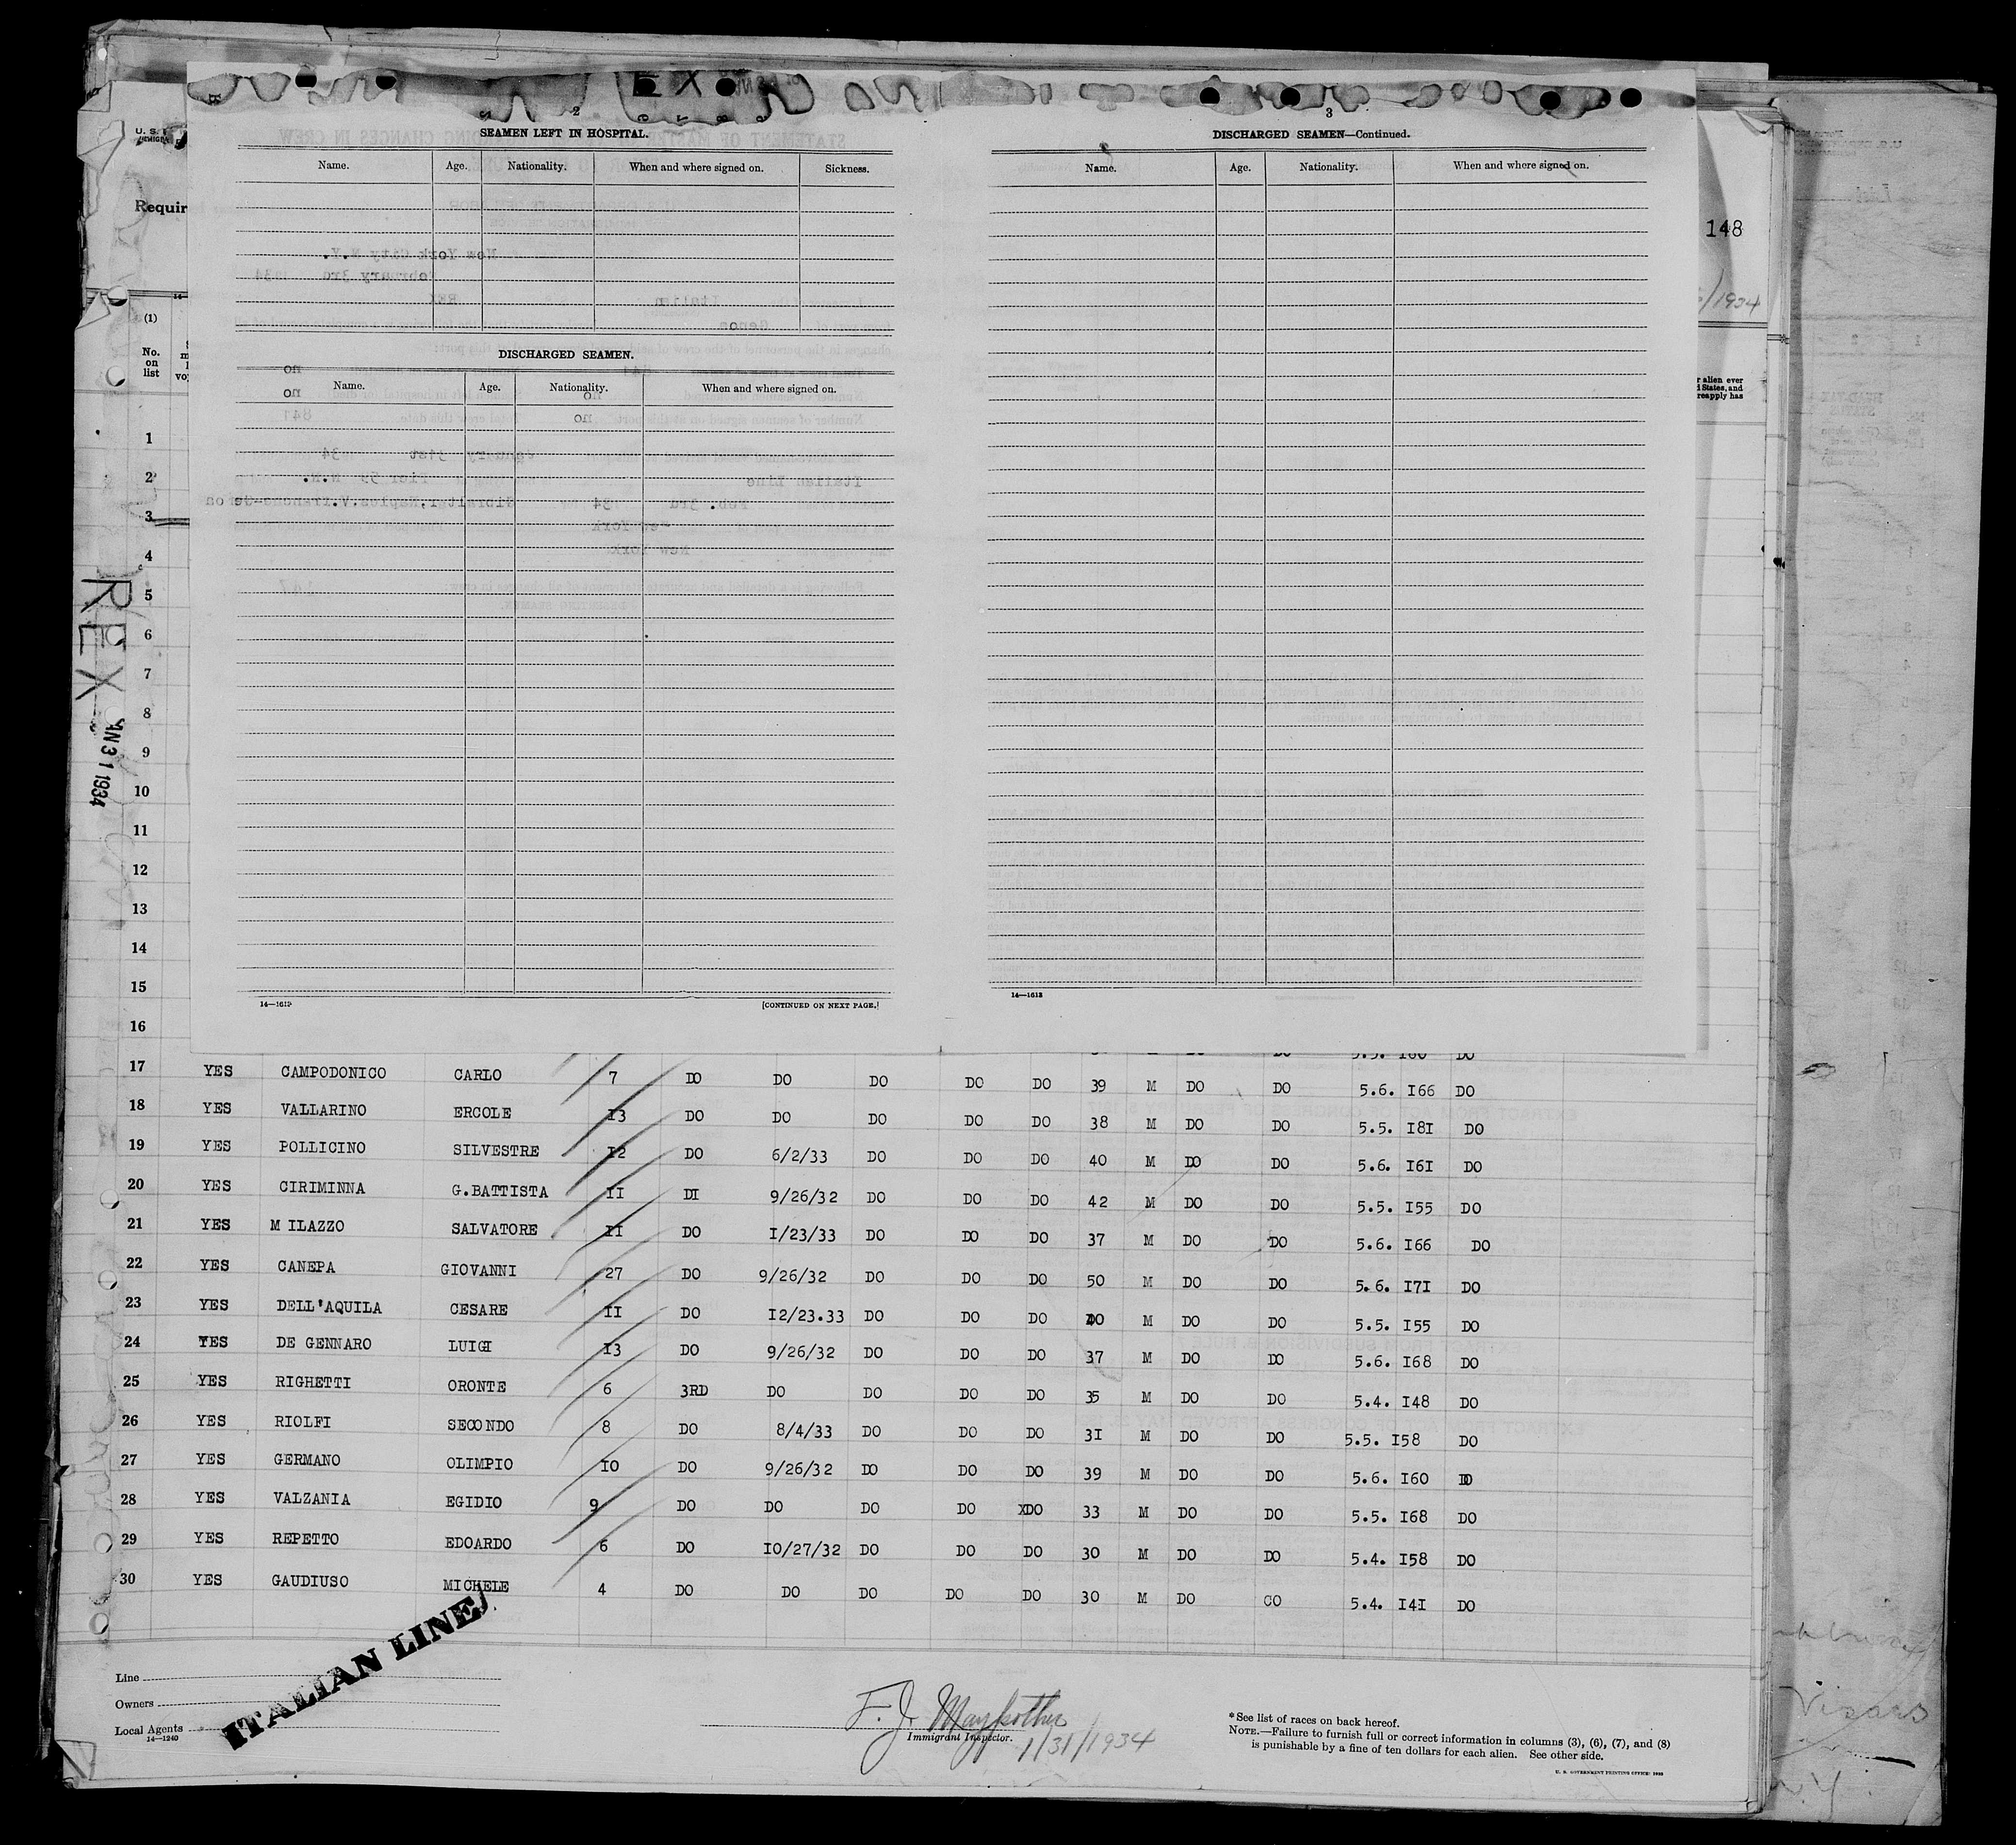 E X
2
SEAMEN LEFT IN HOSPITAL.
Name. Age. Nationality. When and where signed on. Sickness.
DISCHARGED SEAMEN.
Name. Age. Nationality. When and where signed on.
14—1613
[CONTINUED ON NEXT PAGE.]
3
DISCHARGED SEAMEN—Continued.
Name. Age. Nationality. When and where signed on.
14—1613
U. S.
Requir
148
/1934
(1)
No.
on
list
r alien ever
States, and
reapply has
REX
JAN 31 1934
1
2
3
4
5
6
7
8
9
10
11
12
13
14
15
16
17 YES CAMPODONICO CARLO 7 DO DO DO DO DO 39 M DO DO 5.6. I66 DO
18 YES VALLARINO ERCOLE I3 DO DO DO DO DO 38 M DO DO 5.5. I8I DO
19 YES POLLICINO SILVESTRE I2 DO 6/2/33 DO DO DO 40 M DO DO 5.6. I6I DO
20 YES CIRIMINNA G.BATTISTA II DI 9/26/32 DO DO DO 42 M DO DO 5.5. I55 DO
21 YES M ILAZZO SALVATORE II DO I/23/33 DO DO DO 37 M DO DO 5.6. I66 DO
22 YES CANEPA GIOVANNI 27 DO 9/26/32 DO DO DO 50 M DO DO 5.6. I7I DO
23 YES DELL'AQUILA CESARE II DO I2/23.33 DO DO DO 40 M DO DO 5.5. I55 DO
24 YES DE GENNARO LUIGI I3 DO 9/26/32 DO DO DO 37 M DO DO 5.6. I68 DO
25 YES RIGHETTI ORONTE 6 3RD DO DO DO DO 35 M DO DO 5.4. I48 DO
26 YES RIOLFI SECONDO 8 DO 8/4/33 DO DO DO 3I M DO DO 5.5. I58 DO
27 YES GERMANO OLIMPIO IO DO 9/26/32 DO DO DO 39 M DO DO 5.6. I60 DO
28 YES VALZANIA EGIDIO 9 DO DO DO DO XDO 33 M DO DO 5.5. I68 DO
29 YES REPETTO EDOARDO 6 DO IO/27/32 DO DO DO 30 M DO DO 5.4. I58 DO
30 YES GAUDIUSO MICHELE 4 DO DO DO DO DO 30 M DO CO 5.4. I4I DO
Line
Owners
Local Agents
14—1240
ITALIAN LINE
F. J. Maypother
Immigrant Inspector.
1/31/1934
*See list of races on back hereof.
NOTE.—Failure to furnish full or correct information in columns (3), (6), (7), and (8)
is punishable by a fine of ten dollars for each alien. See other side.
U. S. GOVERNMENT PRINTING OFFICE: 1933
Visaro
N.Y.